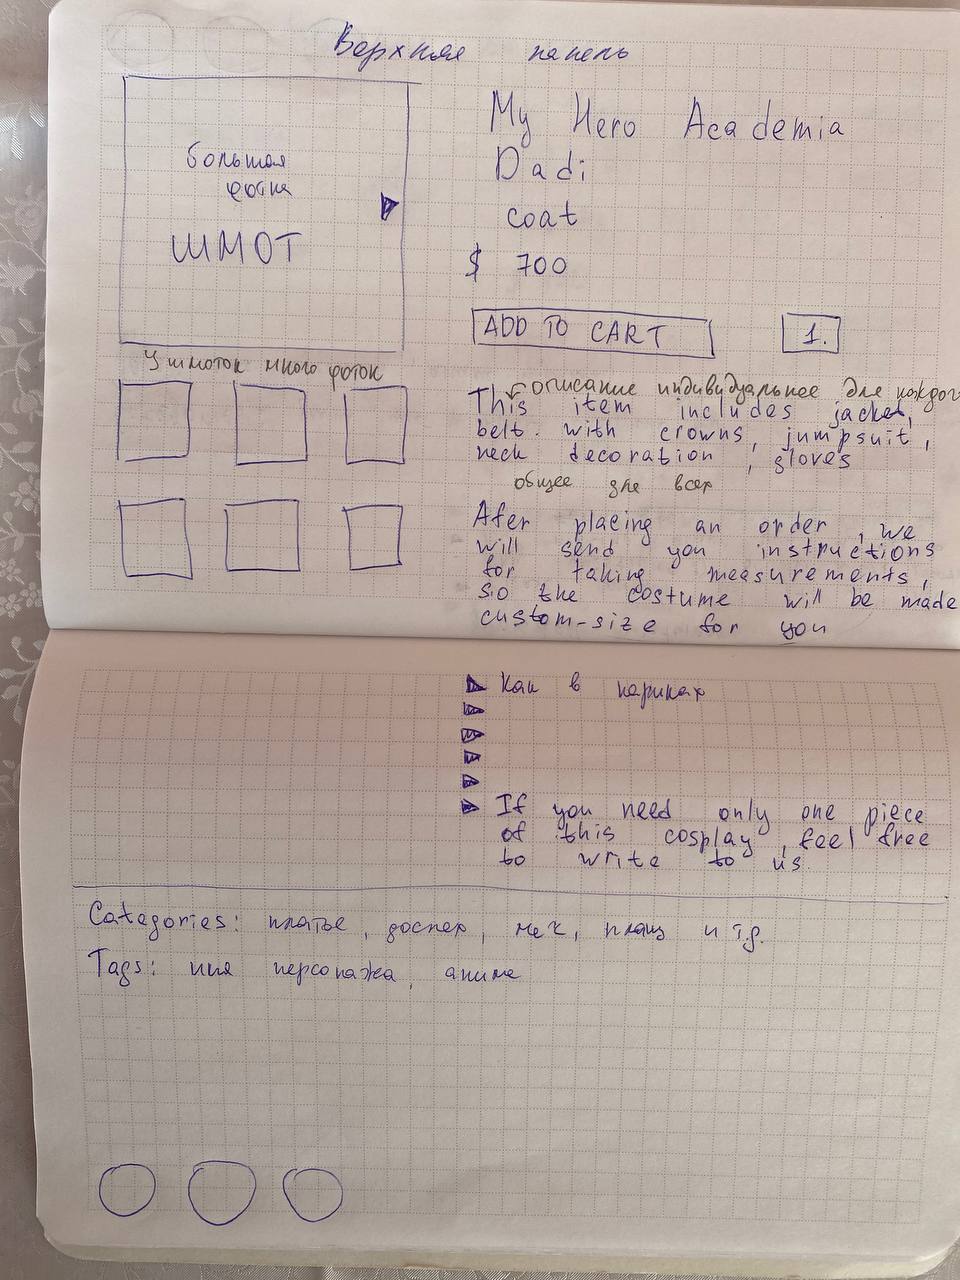 Верхняя панель
большая
фотка
ШМОТ
My Hero Academia
Dadi
coat
$ 700
ADD TO CART
1.
У шмоток много фоток
описание индивидуальное для каждого
This item includes jacket,
belt with crowns, jumpsuit,
neck decoration, gloves
общее для всех
Afer placing an order, we
will send you instructions
for taking measurements,
so the costume will be made
custom-size for you
Как в париках
If you need only one piece
of this cosplay, feel free
to write to us
Categories: платье, доспех, меч, плащ и т.д.
Tags: имя персонажа, аниме